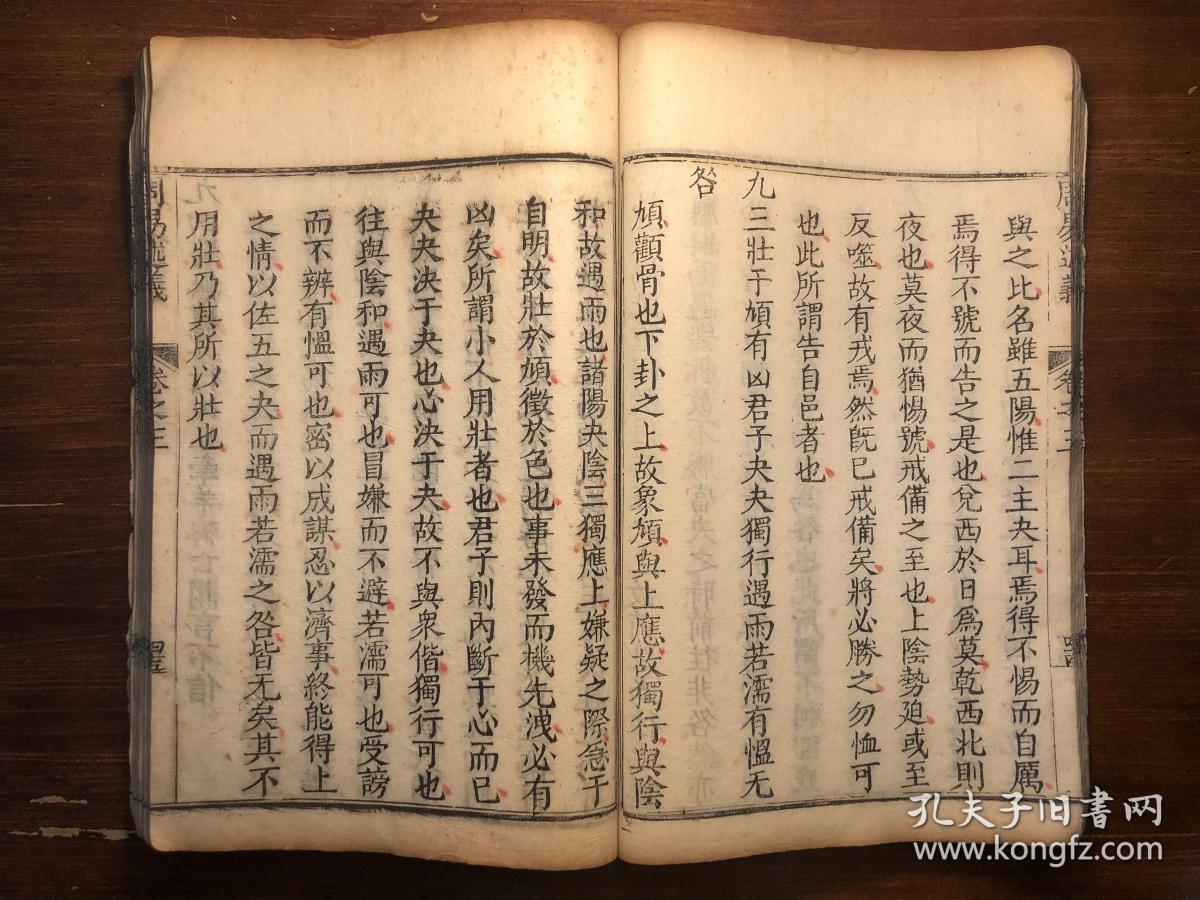 周易述義
卷之三
四四
與之比名雖五陽惟二主夬耳焉得不惕而自厲
焉得不號而告之是也兌西於日爲莫乾西北則
夜也莫夜而猶惕號戒備之至也上陰勢廹或至
反噬故有戎焉然旣已戒備矣將必勝之勿恤可
也此所謂告自邑者也
九三壯于頄有凶君子夬夬獨行遇雨若濡有慍无
咎
頄顴骨也下卦之上故象頄與上應故獨行與陰
和故遇雨也諸陽夬陰三獨應上嫌疑之際急于
自明故壯於頄徵於色也事未發而機先洩必有
凶矣所謂小人用壯者也君子則內斷于心而已
夬夬決于夬也心決于夬故不與衆偕獨行可也
往與陰和遇雨可也冒嫌而不避若濡可也受謗
而不辨有慍可也密以成謀忍以濟事終能得上
之情以佐五之夬而遇雨若濡之咎皆无矣其不
用壯乃其所以壯也
周易述義
卷之三
四五
孔夫子旧书网
www.kongfz.com